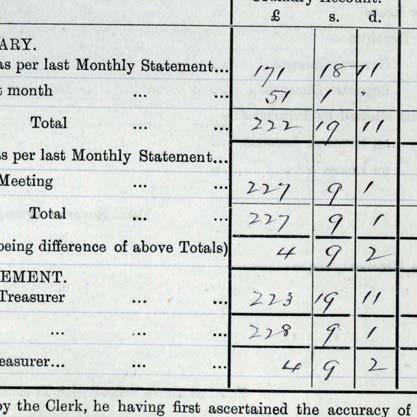 Ordinary Account.
£ s. d.
ARY.
as per last Monthly Statement... 171 18 11
t month ... ... 51 1 "
Total ... ... 222 19 11
s per last Monthly Statement...
Meeting ... ... 227 9 1
Total ... ... 227 9 1
being difference of above Totals) 4 9 2
EMENT.
Treasurer ... ... 223 19 11
... ... 228 9 1
easurer... ... 4 9 2
by the Clerk, he having first ascertained the accuracy of